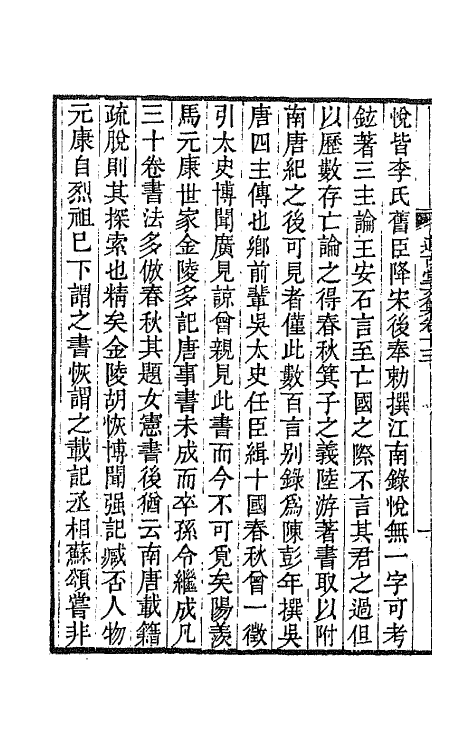 悅皆李氏舊臣降宋後奉勅撰江南錄悅無一字可考
鉉著三主論王安石言至亡國之際不言其君之過但
以歷數存亡論之得春秋箕子之義陸游著書取以附
南唐紀之後可見者僅此數百言别錄爲陳彭年撰吳
唐四主傳也鄉前輩吳太史任臣緝十國春秋曾一徵
引太史博聞廣見諒曾親見此書而今不可覔矣陽羨
馬元康世家金陵多記唐事書未成而卒孫令繼成凡
三十卷書法多倣春秋其題女憲書後猶云南唐載籍
疏脫則其探索也精矣金陵胡恢博聞强記臧否人物
元康自烈祖巳下謂之書恢謂之載記丞相蘇頌嘗非